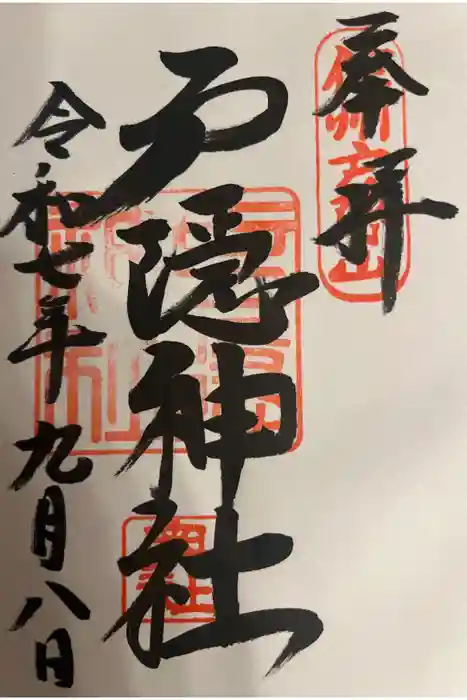 奉拝
戸隠神社
令和七年九月八日